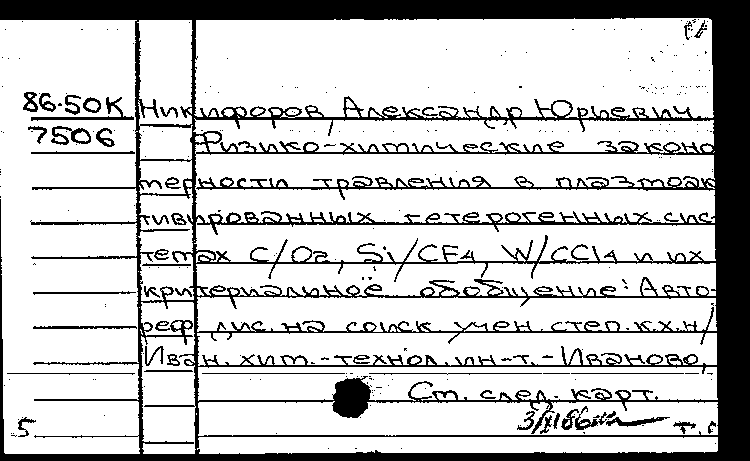 86-50К Никифоров, Александр Юрьевич.
7506 Физико-химические законо
мерности травления в плазмоак
тивированных гетерогенных сис
темах C/O2, Si/CF4, W/CCl4 и их
критериальное обобщение: Авто-
реф. дис. на соиск учен. степ. к.х.н/
Иван. хим.-технол. ин-т. - Иваново,
Ст. след. карт.
5